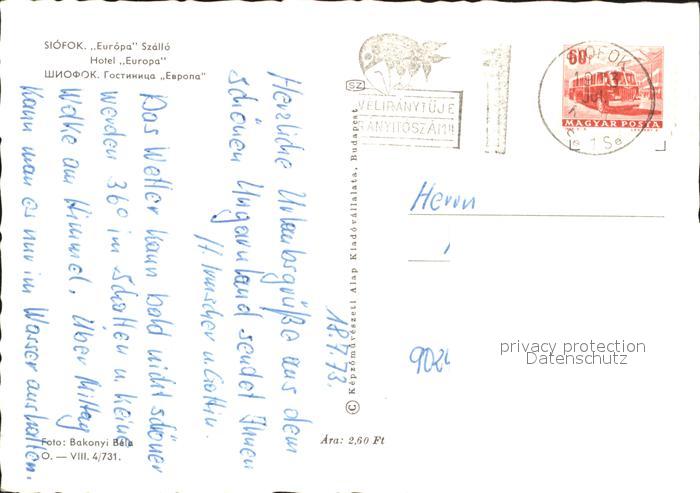 SIÓFOK. „Európa" Szálló
Hotel „Europa"
ШИОФОК. Гостиница „Европа"
Herzliche Urlaubsgrüße aus dem
schönen Ungarnland sendet Ihnen
u. Gattin.
Das Wetter kann bald nicht schöner
werden 36° im Schatten u. keine
Wolke am Himmel. Über Mittag
kann man es nur im Wasser aushalten.
18.7.73.
Foto: Bakonyi Béla
O. — VIII. 4/731.
Ára: 2,60 Ft
© Képzőművészeti Alap Kiadóvállalata, Budapest
SZ
VELIRÁNYTŰJE
ÁNYÍTÓSZÁM!!
SIÓFOK
60f
MAGYAR POSTA
Herrn
9024
privacy protection
Datenschutz